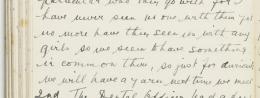 particular who they go with for I
have never seen us one with them yet
no more have them seen us with any
girls so we seem to have something
in common there, so just for curiosity
we will have a yarn next time we meet
2nd The Dental Officer had a